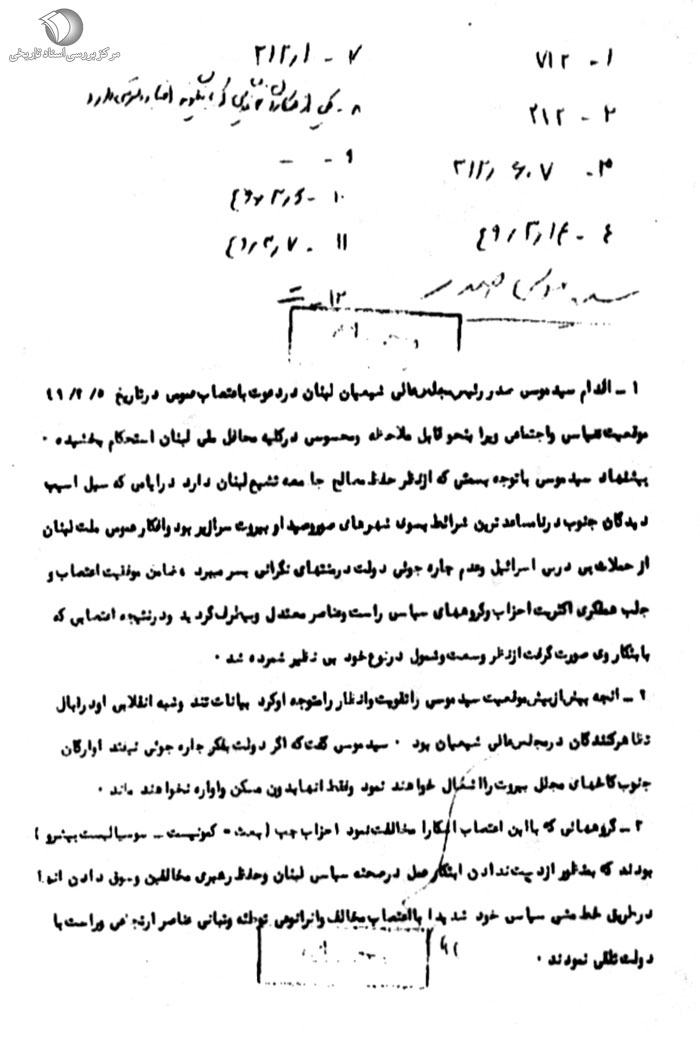 مرکز بررسی اسناد تاریخی
۱ - ۷۱۲
۷ - ۳۱۲٫۱
۲ - ۲۱۲
۸ -
۳ - ۳۱۲
۹ - -
۱۰ -
۴ - ۴۹٫۳٫۱۴
۱۱ - ۴۹٫۳٫۷
۱۲
سید موسی صدر
۱ - اقدام سید موسی صدر رئیس مجلس عالی شیعیان لبنان در دعوت باعتصاب عمومی در تاریخ ۴۹/۳/۵
موقعیت سیاسی واجتماعی ویرا بنحو قابل ملاحظه ومحسوسی در کلیه محافل ملی لبنان استحکام بخشیده ۰
پیشنهاد سید موسی با توجه بسمتی که از نظر حفظ مصالح جامعه تشیع لبنان دارد در ایامی که سیل آسیب
دیدگان جنوب در نامساعد ترین شرائط بسوی شهرهای صور وصیدا و بیروت سرازیر بود وافکار عمومی ملت لبنان
از حملات پی درپی اسرائیل وعدم چاره جوئی دولت در منتهای نگرانی بسر میبرد ، ضامن موفقیت اعتصاب و
جلب همفکری اکثریت احزاب وگروههای سیاسی راست وعناصر معتدل وبیطرف گردید ودر نتیجه اعتصابی که
بابتکار وی صورت گرفت از نظر وسعت وشمول در نوع خود بی نظیر شمرده شد ۰
۲ - آنچه بیش از پیش موقعیت سید موسی را تقویت وانظار را متوجه اوکرد بیانات تند وشبه انقلابی او در قبال
تظاهر کنندگان در مجلس عالی شیعیان بود ۰ سید موسی گفت که اگر دولت بفکر چاره جوئی نیفتد آوارگان
جنوب کاخهای مجلل بیروت را اشغال خواهند نمود وفقط آنها بدون مسکن وآواره نخواهند ماند ۰
۳ - گروههائی که با این اعتصاب آشکارا مخالفت نمود احزاب چپ ( بعث - کمونیست - سوسیالیست پیشرو )
بودند که بمنظور از دست ندادن ابتکار عمل در صحنه سیاسی لبنان وحفظ رهبری مخالفین وسوق دادن آنها
در طریق خط مشی سیاسی خود شدیدا با اعتصاب مخالف وآنرا نوعی توطئه وتبانی عناصر ارتجاعی وراست با
دولت تلقی نمودند ۰